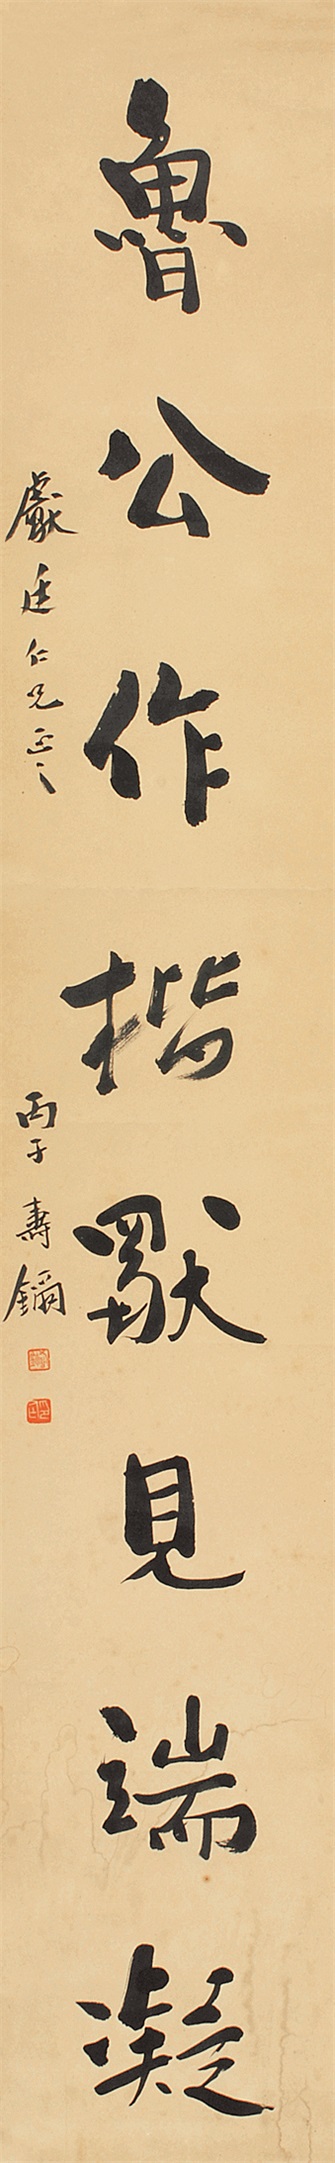 魯公作楷默見端凝
獻廷仁兄正之
丙子壽鏞